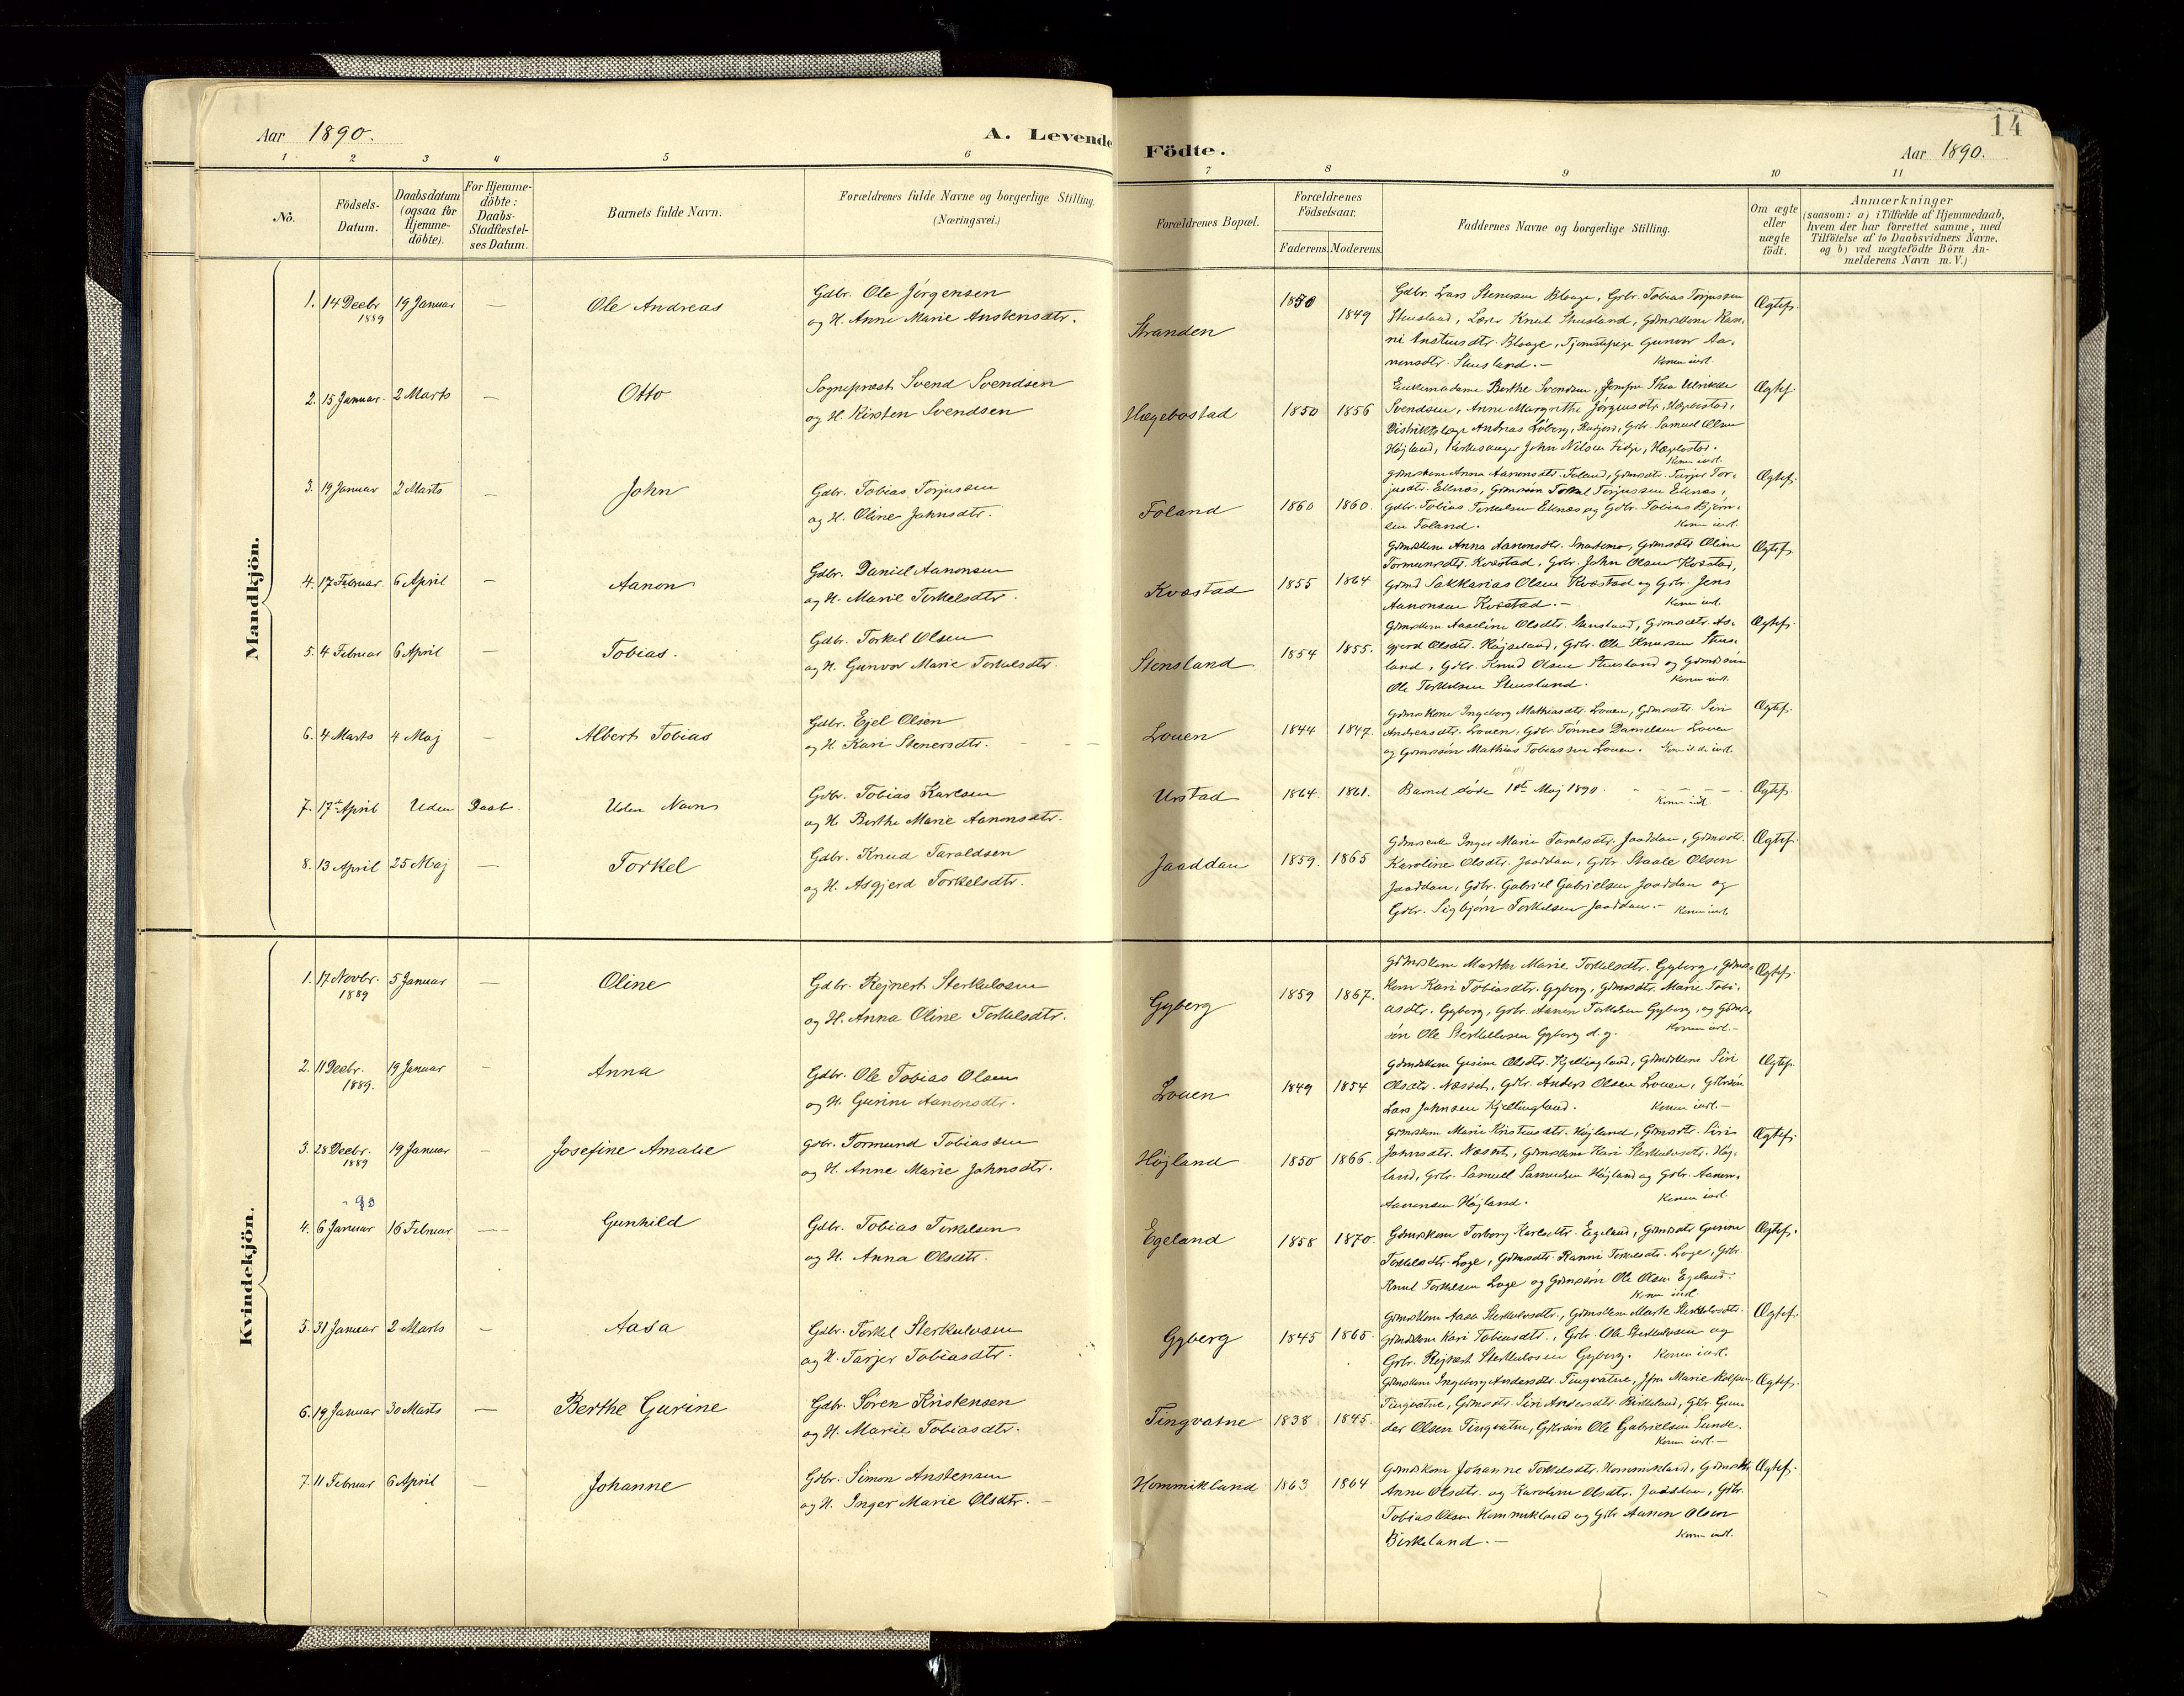 14
Aar 1890.
A. Levende Födte.
Aar 1890.
1 2 3 4 5 6 7 8 9 10 11
No.
Födsels-Datum.
Daabsdatum (ogsaa for Hjemme-döbte).
For Hjemme-döbte: Daabs-Stadfæstel-ses Datum.
Barnets fulde Navn.
Forældrenes fulde Navne og borgerlige Stilling.
(Næringsvei.)
Forældrenes Bopæl.
Forældrenes Födselsaar.
Faderens. Moderens.
Faddernes Navne og borgerlige Stilling.
Om ægte eller uægte födt.
Anmærkninger
(saasom: a) i Tilfælde af Hjemmedaab,
hvem der har forrettet samme, med
Tilföielse af to Daabsvidners Navne,
og b) ved uægtefödte Börn An-
melderens Navn m. V.)
Mandkjön.
1. 14 Decbr. 1889 19 Januar — Ole Andreas
Gdbr. Ole Jörgensen
og H. Anne Marie Anstensdtr.
Stranden 1850 1849
Gdbr. Lars Stenersen Blaage, Gdbr. Tobias Torjussen
Stensland, Lærer Knut Stensland, Gdmdskone Ran-
ni Anstensdtr. Blaage, Tjenestepige Gunvor Aa-
nensdtr. Stensland. —
Ægtef.
2. 15 Januar 2 Marts — Otto
Sogneprest Svend Svendsen
og H. Kirsten Svendsen
Hægebostad 1850 1856
Enkemadame Berthe Svendsen, Jomfru Thea Ulrikke
Svendsen, Anne Margrethe Jörgensdtr. Hægebostad,
Distriktslæge Andreas Loberg, Gdbr. Samuel Olsen
Höjland, Kirkesanger John Nilsen Eidje, Hægebostad.
Ægtef.
3. 19 Januar 2 Marts — John
Gdbr. Tobias Torjussen
og H. Oline Johnsdtr.
Foland 1860 1860.
Gdmdskone Anna Aanonsdtr. Foland, Gdmdsdtr. Tarjer Tor-
jusdtr. Eknæs, Gdmdssön Torkel Torjussen Eknæs,
Gdbr. Tobias Torkelsen Eknæs og Gdbr. Tobias Björn-
sen Foland.
Ægtef.
4. 17 Februar 6 April — Aanon
Gdbr. Daniel Aanonsen
og H. Marie Torkelsdtr.
Kvæstad 1855 1864
Gdmdskone Anna Aanonsdtr. Snartemo, Gdmdsdtr. Oline
Tormundsdtr. Kvæstad, Gdbr. John Olsen Kvæstad,
Gdmd Sakkarias Olsen Kvæstad og Gdbr. Jens
Aanonsen Kvæstad. —
Ægtef.
5. 4 Februar 6 April — Tobias.
Gdbr. Torkel Olsen
og H. Gunvor Marie Torkelsdtr.
Stensland 1854 1855.
Gdmdskone Aaseline Olsdtr. Stensland, Gdmdsdtr. As-
gjerd Olsdtr. Höjseland, Gdbr. Ole Knudsen Stens-
land, Gdbr. Knud Olsen Stensland og Gdmdssön
Ole Torkelsen Stensland.
Ægtef.
6. 4 Marts 4 Maj — Albert Tobias
Gdbr. Ejel Olsen
og H. Kari Stenersdtr.
Louen 1844 1847.
Gdmdskone Ingeborg Mathiasdtr. Louen, Gdmdsdtr. Siri
Andreasdtr. Louen, Gdbr. Tönnes Danielsen Louen
og Gdmdssön Mathias Tobiassen Louen.
Ægtef.
7. 17de April Uden Daab. Uden Navn
Gdbr. Tobias Karlsen
og H. Berthe Marie Aanonsdtr.
Urstad 1864. 1861.
Barnet döde 1ste Maj 1890.
Ægtef.
8. 13 April 25 Maj — Torkel
Gdbr. Knud Taraldsen
og H. Asgjerd Torkelsdtr.
Jaaddan 1859. 1865
Gdmdsenke Inger Marie Taraldsdtr. Jaaddan, Gdmdsdtr.
Karoline Olsdtr. Jaaddan, Gdbr Staale Olsen
Jaaddan, Gdbr. Gabriel Gabrielsen Jaaddan og
Gdbr. Sigbjörn Torkelsen Jaaddan. —
Ægtef.
Kvindekjön.
1. 17 Novbr. 1889 5 Januar — Oline
Gdbr. Rejnert Sterkulvsen
og H. Anna Oline Torkelsdtr.
Gyberg 1859 1867.
Gdmdskone Marthe Marie Torkelsdtr. Gyberg, Gdmds-
kone Kari Tobiasdtr. Gyberg, Gdmdsdtr. Marie Tobi-
asdtr. Gyberg, Gdbr. Aanen Torkelsen Gyberg, og Gdmds-
sön Ole Sterkulvsen Gyberg d. y.
Ægtef.
2. 11 Decbr. 1889. 19 Januar — Anna
Gdbr. Ole Tobias Olsen
og H. Gurine Aanonsdtr.
Louen 1849 1854
Gdmdskone Gusine Olsdtr. Kjellingland, Gdmdskone Siri
Olsdtr. Næsset, Gdbr. Anders Olsen Louen, Gdbrsön
Lars Johnsen Kjellingland.
Ægtef.
3. 28 Decbr. 1889 19 Januar — Josefine Amalie
Gdbr. Tormund Tobiassen
og H. Anne Marie Johnsdtr.
Höjland 1850 1866.
Gdmdskone Marie Kristensdtr. Höjland, Gdmdsdtr. Siri
Johnsdtr. Næset, Gdmdskone Kari Sterkulvsdtr. Höj-
land, Gdbr. Samuel Samuelsen Höjland og Gdbr. Aanen
Aanensen Höjland.
Ægtef.
4. 6 Januar 16 Februar — Gunhild
Gdbr. Tobias Torkelsen
og H. Anna Olsdtr.
Egeland 1858 1870.
Gdmdskone Torborg Karlsdtr. Egeland, Gdmdsdtr Gurine
Torkelsdtr. Loge, Gdmdsdtr. Ranni Torkelsdtr. Loge, Gdbr.
Knut Torkelsen Loge og Gdmdssön Ole Olsen Egeland.
Ægtef.
5. 31 Januar 2 Marts — Aasa
Gdbr. Torkel Sterkulvsen
og H. Tarjer Tobiasdtr.
Gyberg 1845 1865.
Gdmdskone Aasa Sterkulvsdtr., Gdmdskone Marte Sterkulvsdtr.
Gdmdskone Kari Tobiasdtr., Gdbr. Ole Sterkulvsen og
Gdbr. Rejnert Sterkulvsen Gyberg.
Ægtef.
6. 19 Januar 30 Marts — Berthe Gurine
Gdbr. Sören Kristensen
og H. Marie Tobiasdtr.
Tingvatne 1838 1845.
Gdmdskone Ingeborg Andersdtr. Tingvatne, Jfru Marie Rolfsen
Tingvatne, Gdmdsdtr. Siri Andersdtr. Birkeland, Gdbr. Gun-
der Olsen Tingvatne, Gdbrsön Ole Gabrielsen Sunde.
Ægtef.
7. 11 Februar 6 April — Johanne
Gdbr. Simon Anstensen
og H. Inger Marie Olsdtr. —
Hommikland 1863 1864
Gdmdskone Johanne Torkelsdtr. Hommikland, Gdmdsdtr
Anne Olsdtr. og Karoline Olsdtr. Jaaddan, Gdbr.
Tobias Olsen Hommikland og Gdbr Aanen Olsen
Birkeland. —
Ægtef.